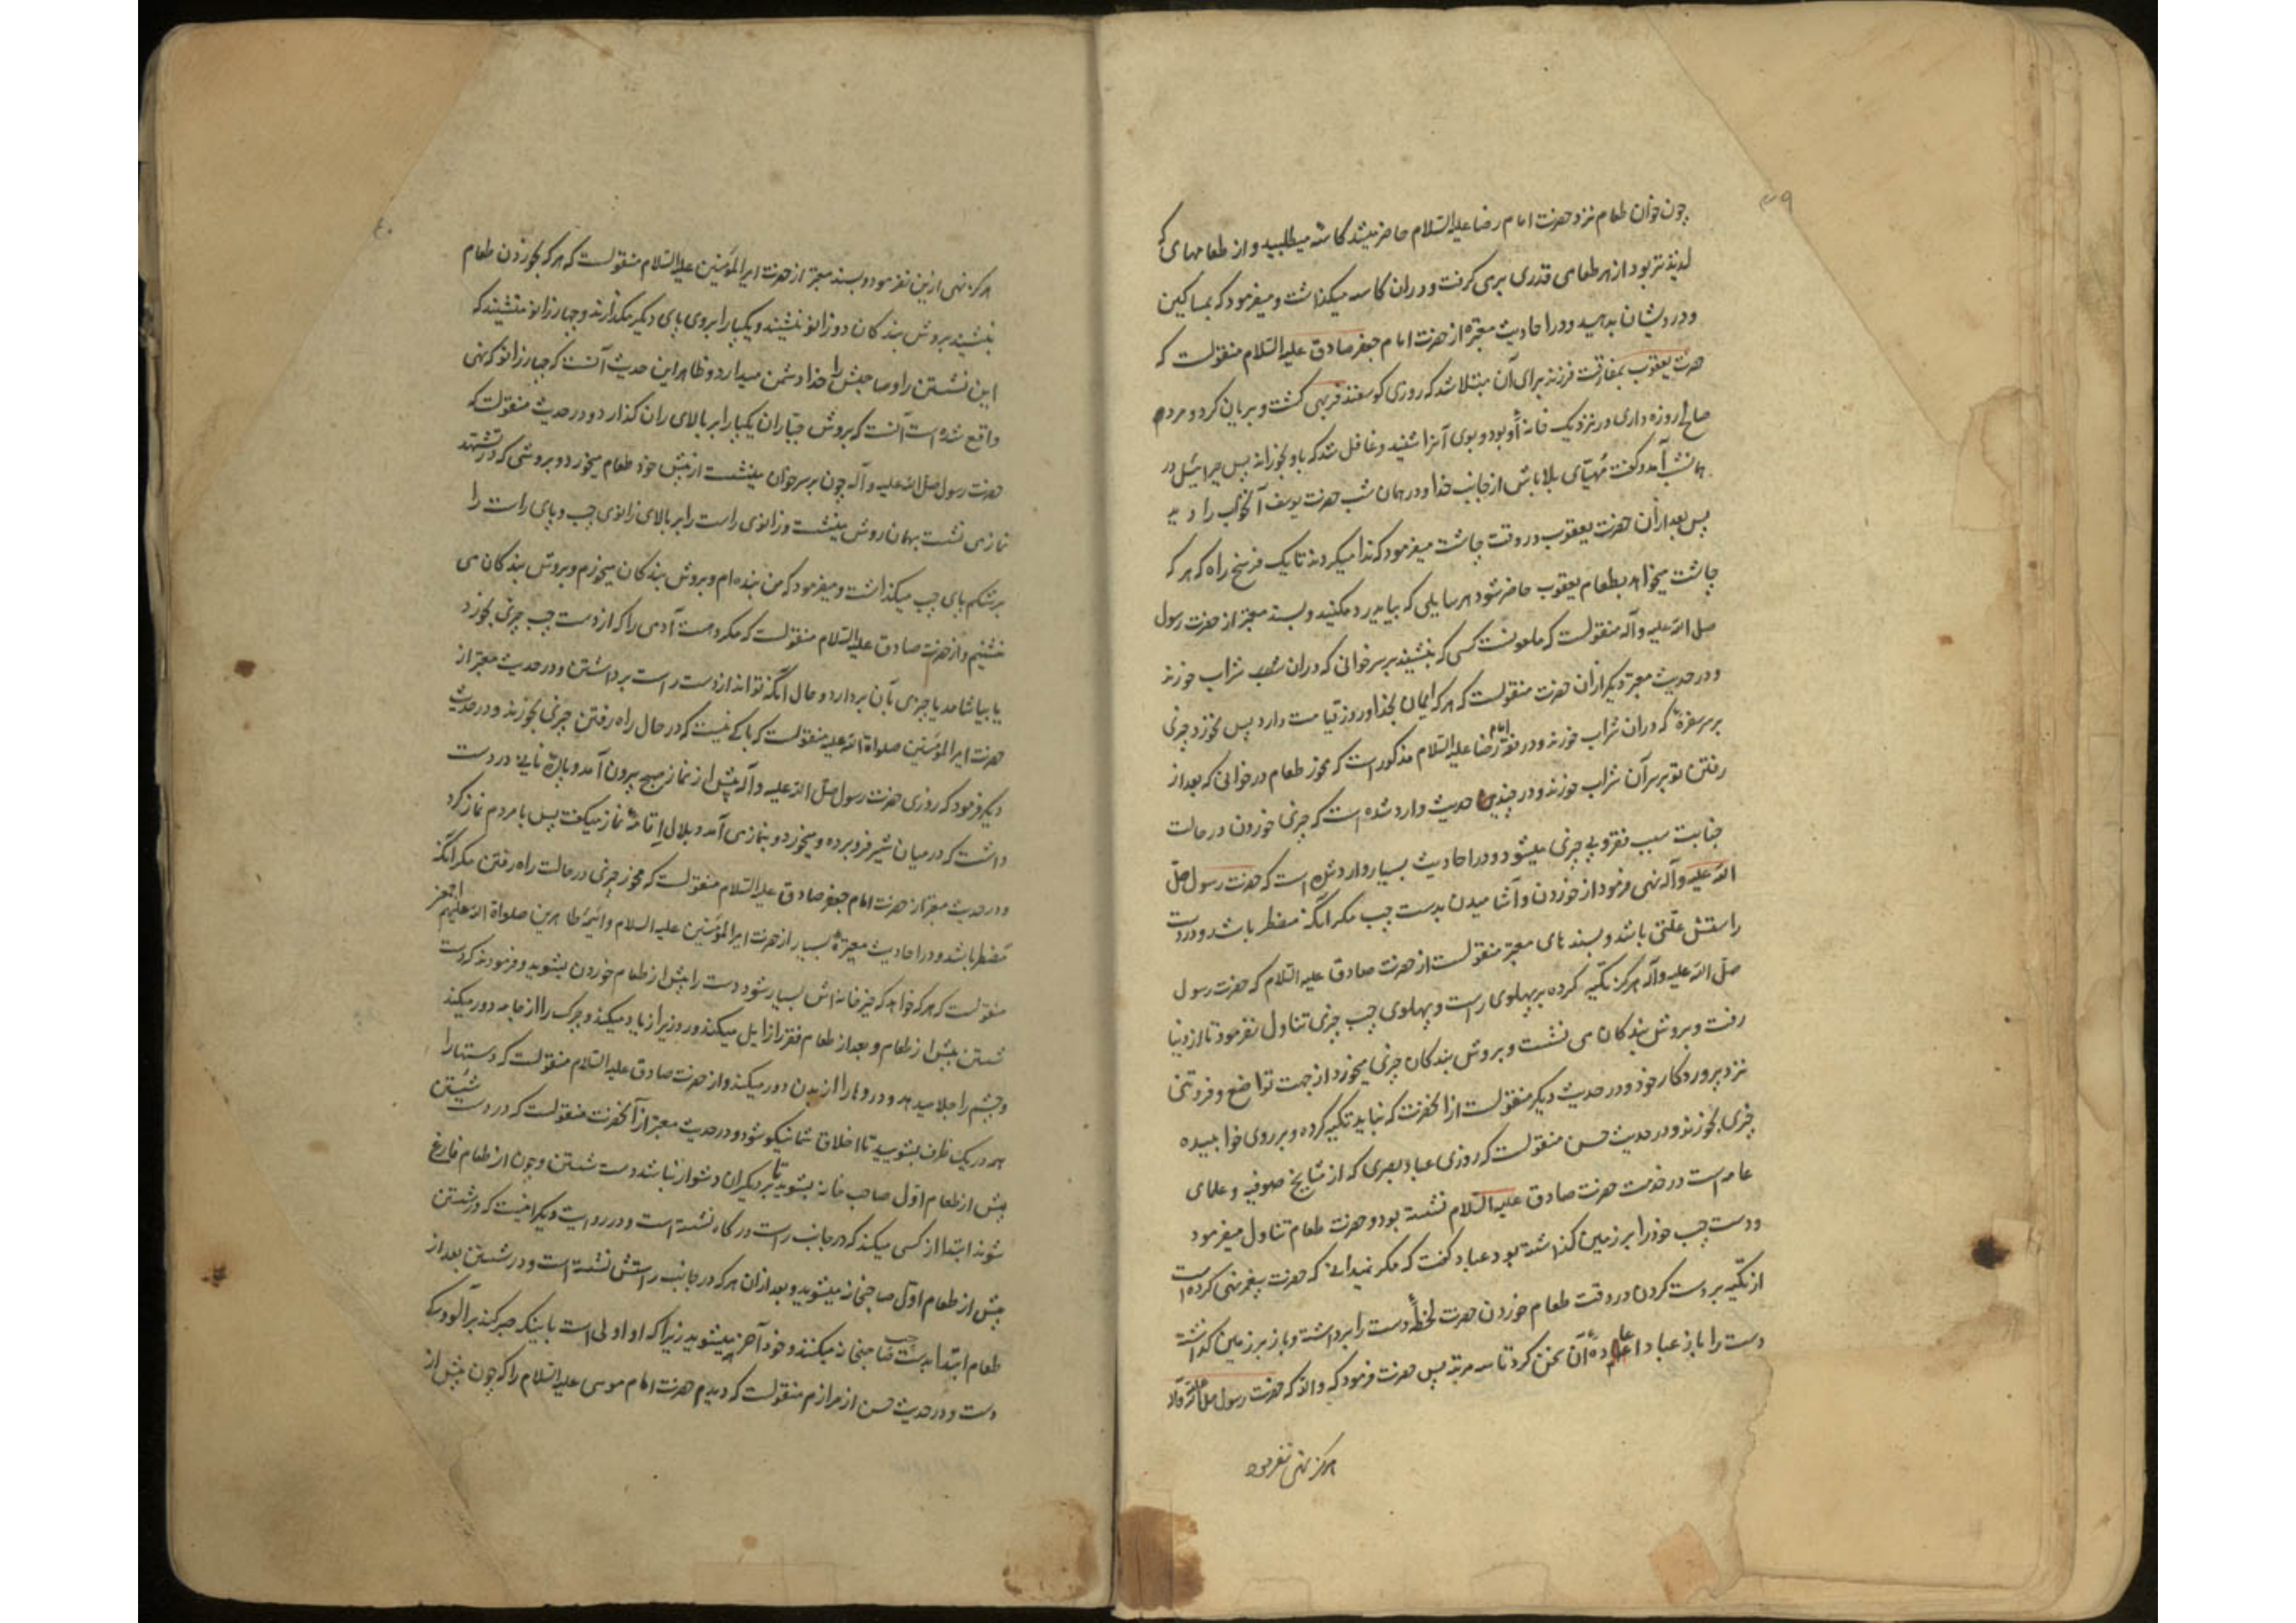 ۳۹
چون خوان طعام نزد حضرت امام رضا علیه السلام حاضر میشد کاسه میطلبید و از طعامهای که
لذیذتر بود از هر طعامی قدری بر می کرفت و در ان کاسه میکذاشت و میفرمود که بمساکین
و درویشان بدهید و در احادیث معتبره از حضرت امام جعفر صادق علیه السلام منقولست که
حضرت یعقوب بمفارقت فرزند برای آن مبتلا شد که روزی کوسفند فربهی کشت و بریان کرد و مردم
صالح روزه داری در نزدیک خانهٔ او بود و بوی آنرا شنید و غافل شد که باو بخوراند پس جبرائیل در
همانشب آمد و کفت مهیّای بلا باش از جانب خدا و در همان شب حضرت یوسف آن خواب را دید
پس بعد از آن حضرت یعقوب در وقت چاشت میفرمود که ندا میکردند تا یک فرسخ راه که هر که
چاشت میخواهد بطعام یعقوب حاضر شود هر سایلی که بیاید رد مکنید و بسند معتبر از حضرت رسول
صلی الله علیه و آله منقولست که ملعونست کسی که بنشیند بر سر خوانی که در ان شراب خورند
و در حدیث معتبر دیگر از آن حضرت منقولست که هر که ایمان بخدا و روز قیامت دارد پس نخورد چیزی
بر سر سفرهٔ که در ان شراب خورند و در فقه امام رضا علیه السلام مذکور است که مخور طعام در خوانی که بعد از
رفتن تو بر سر آن شراب خورند و در چندین حدیث وارد شده است که چیزی خوردن در حالت
جنابت سبب فقر و بی چیزی میشود و در احادیث بسیار وارد شده است که حضرت رسول صلی
الله علیه و آله نهی فرمود از خوردن و آشامیدن بدست چپ مکر آنکه مضطر باشد و در دست
راستش علّتی باشد و بسندهای معتبر منقولست از حضرت صادق علیه السلام که حضرت رسول
صلّی الله علیه و آله هرکز تکیه کرده بر پهلوی راست و پهلوی چپ چیزی تناول نفرمود تا از دنیا
رفت و بروش بندکان می نشست و بروش بندکان چیزی میخورد از جهت تواضع و فروتنی
نزد پروردکار خود و در حدیث دیکر منقولست از انحضرت که نباید تکیه کرده و بر روی خوابیده
چیزی بخورند و در حدیث حسن منقولست که روزی عباد بصری که از مشایخ صوفیه و علمای
عامه است در خدمت حضرت صادق علیه السلام نشسته بود و حضرت طعام تناول میفرمود
و دست چپ خود را بر زمین کذاشته بود عباد کفت که مکر نمیدانی که حضرت پیغمبر نهی کرده است
از تکیه بر دست کردن در وقت طعام خوردن حضرت لحظهٔ دست را برداشته و باز بر زمین کذاشت
دست را باز عباد اعادهٔ آن سخن کرد تا سه مرتبه پس حضرت فرمود که والله که حضرت رسول صلی الله علیه و آله
هرکز نهی نفرمود
۴۰
هرکز نهی از این نفرمود و بسند معتبر از حضرت امیر المؤمنین علیه السلام منقولست که هر که بخوردن طعام
بنشیند بروش بندکان دو زانو بنشیند و یکپا را بروی پای دیگر مکذارند و چهار زانو منشیند که
این نشستن را و صاحبش را خدا دشمن میدارد و ظاهر این حدیث آنست که چهار زانو که نهی
واقع شده است آنست که بروش جبّاران یکپا را بر بالای ران کذارد و در حدیث منقولست که
حضرت رسول صلی الله علیه و آله چون بر سر خوان مینشست از پیش خود طعام میخورد و بروشی که در تشهد
نماز می نشست بهمان روش مینشست و زانوی راست را بر بالای زانوی چپ و پای راست را
بر شکم پای چپ میکذاشت و میفرمود که من بنده ام و بروش بندکان میخورم و بروش بندکان می
نشینم و از حضرت صادق علیه السلام منقولست که مکروهست آدمی را که از دست چپ چیزی بخورد
یا بیاشامد یا چیزی بآن بردارد و حال آنکه تواند از دست راست برداشتن و در حدیث معتبر از
حضرت امیر المؤمنین صلواة الله علیه منقولست که باکی نیست که در حال راه رفتن چیزی بخورند و در حدیث
دیگر فرمود که روزی حضرت رسول صلی الله علیه و آله پیش از نماز صبح بیرون آمد و پارهٔ نانی در دست
داشت که در میان شیر فرو برده و میخورد و بنماز می آمد و بلال اقامهٔ نماز میکفت پس با مردم نماز کرد
و در حدیث معتبر از حضرت امام جعفر صادق علیه السلام منقولست که مخور چیزی در حالت راه رفتن مکر آنکه
مضطر باشد و در احادیث معتبرهٔ بسیار از حضرت امیر المؤمنین علیه السلام و ائمهٔ طاهرین صلواة الله علیهم اجمعین
منقولست که هر که خواهد که خیر خانه اش بسیار شود دست را پیش از طعام خوردن بشوید و فرمودند که دست
شستن پیش از طعام و بعد از طعام فقر را زایل میکند و روزیرا زیاد میکند و چرک را از جامه دور میکند
و چشم را جلا میدهد و دردها را از بدن دور میکند و از حضرت صادق علیه السلام منقولست که دستها را
همه در یک ظرف بشویید تا اخلاق شما نیکو شود و در حدیث معتبر از آنحضرت منقولست که در دست شستن
پیش از طعام اوّل صاحب خانه بشوید تا بر دیگران دشوار نباشد دست شستن و چون از طعام فارغ
شوند ابتدا از کسی میکند که در جانب راست درگاه نشسته است و در روایت دیگر آنست که در شستن
پیش از طعام اوّل صاحبخانه میشوید و بعد از ان هر که در جانب راستش نشسته است و در شستن بعد از
طعام ابتدا بدست چپ صاحبخانه میکنند و خود آخر میشوید زیرا که او اولی است باینکه صبر کند بر آلودگی
دست و در حدیث حسن از مرازم منقولست که دیدم حضرت امام موسی علیه السلام را که چون پیش از